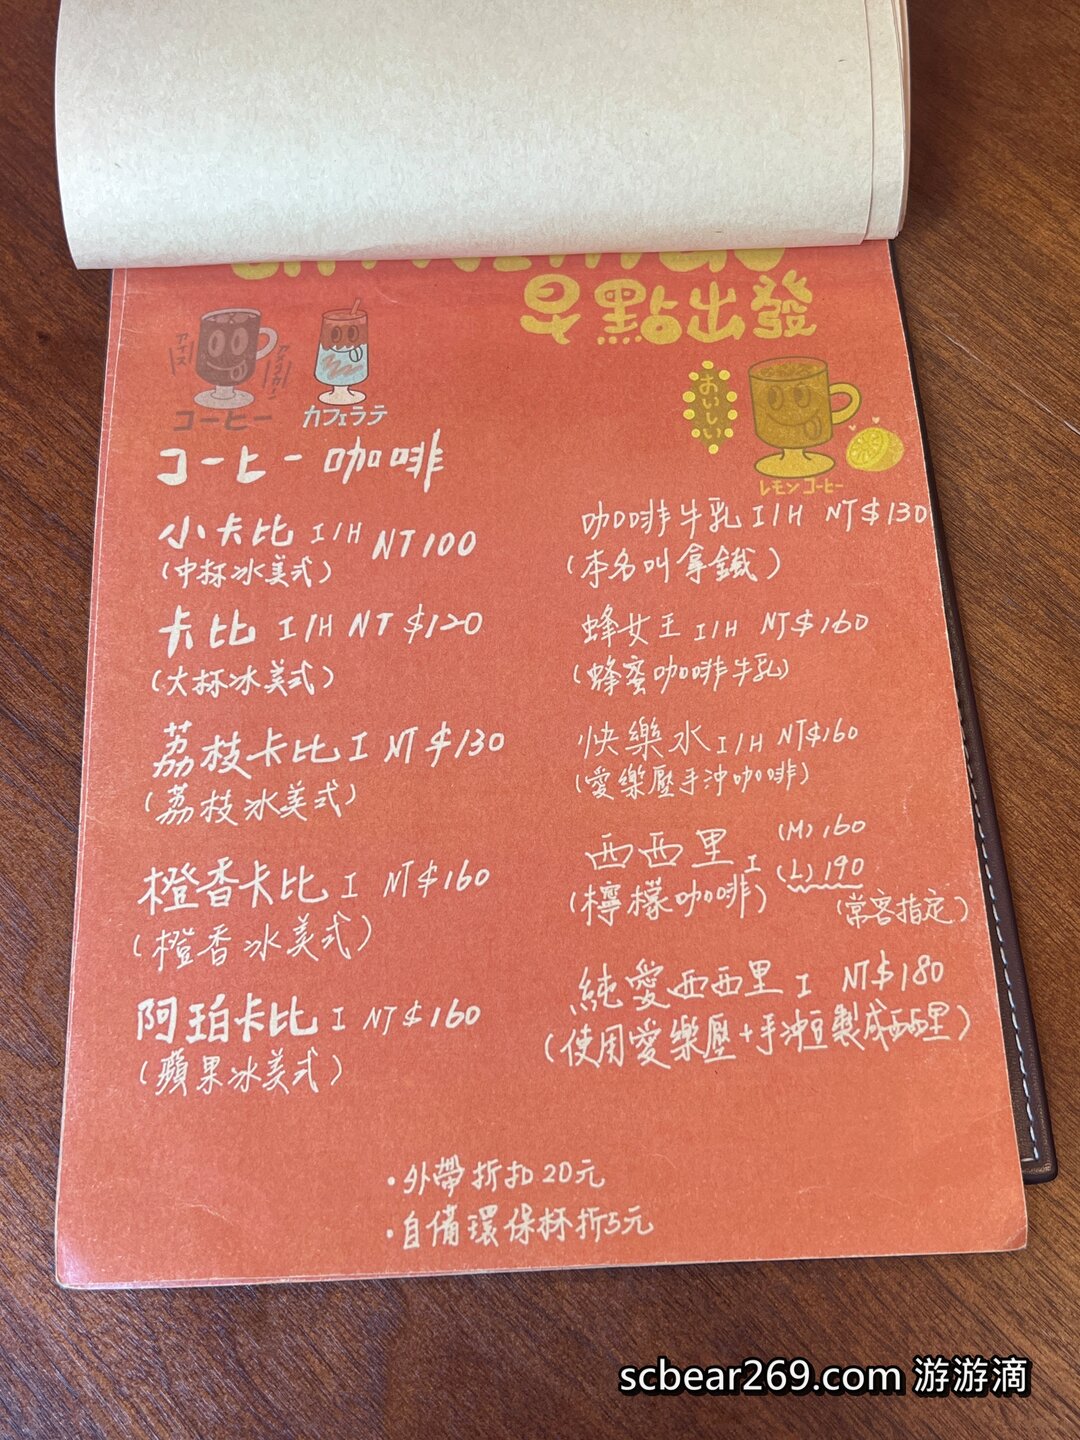 早點出發
アイス
アメリカーノ
コーヒー
カフェラテ
おいしい
レモンコーヒー
コーヒー 咖啡
小卡比 I/H NT100
(中杯冰美式)
卡比 I/H NT$120
(大杯冰美式)
荔枝卡比 I NT$130
(荔枝冰美式)
橙香卡比 I NT$160
(橙香冰美式)
阿珀卡比 I NT$160
(蘋果冰美式)
咖啡牛乳 I/H NT$130
(本名叫拿鐵)
蜂女王 I/H NT$160
(蜂蜜咖啡牛乳)
快樂水 I/H NT$160
(愛樂壓手沖咖啡)
西西里 I (M)160
(L)190
(檸檬咖啡) (常客指定)
純愛西西里 I NT$180
(使用愛樂壓+手沖豆製成西西里)
·外帶折扣20元
·自備環保杯折5元
scbear269.com 游游滴